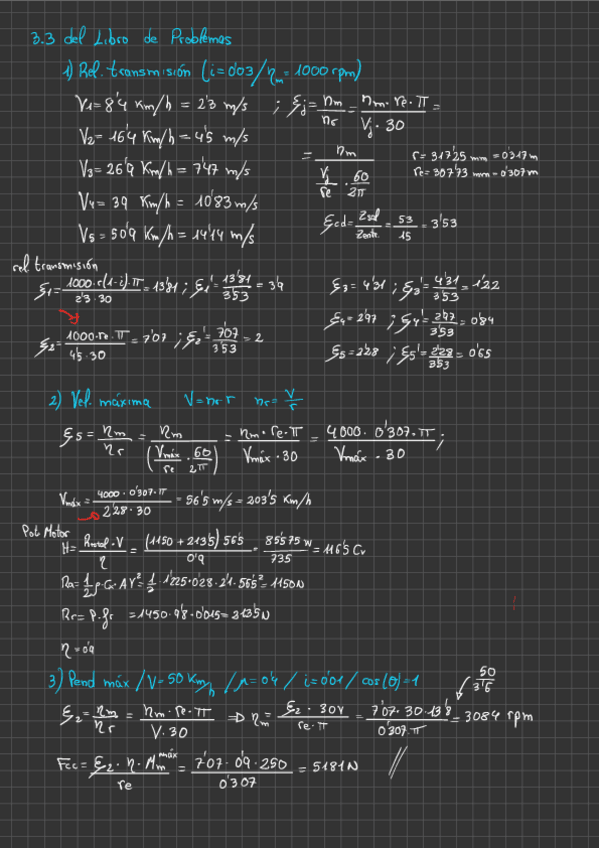 3.3 del Libro de Problemas
1) Rel. transmisión (i=0'03 / ηm = 1000 rpm)
V1 = 8'4 Km/h = 2'3 m/s ; ξj = nm/nr = nm·re·π / Vj·30 =
V2 = 16'4 Km/h = 4'5 m/s
V3 = 26'9 Km/h = 7'47 m/s
V4 = 39 Km/h = 10'83 m/s
V5 = 50'9 Km/h = 14'14 m/s
= nm / (Vj/re · 60/2π)
r = 317'25 mm = 0'317 m
re = 307'73 mm = 0'307 m
ξcd = Zsal/Zentr. = 53/15 = 3'53
rel transmisión
ξ1 = 1000·r(1-i)·π / 2'3·30 = 13'81 ; ξ1' = 13'81/3'53 = 3'9
ξ2 = 1000·re·π / 4'5·30 = 7'07 ; ξ2' = 7'07/3'53 = 2
ξ3 = 4'31 ; ξ3' = 4'31/3'53 = 1'22
ξ4 = 2'97 ; ξ4' = 2'97/3'53 = 0'84
ξ5 = 2'28 ; ξ5' = 2'28/3'53 = 0'65
2) Vel. máxima V = nr·r nr = V/r
ξ5 = nm/nr = nm / (Vmáx/re · 60/2π) = nm·re·π / Vmáx·30 = 4000·0'307·π / Vmáx·30 ;
Vmáx = 4000·0'307·π / 2'28·30 = 56'5 m/s = 203'5 Km/h
Pot Motor
H = Rtotal·V / η = (1150 + 213'5) 56'5 / 0'9 = 85575 W / 735 = 116'5 Cv
Ra = 1/2 ρ·Cx·A·V² = 1/2 · 1'225·0'28·2'1·56'5² = 1150 N
Rr = P·fr = 1450·9'8·0'015 = 213'5 N
η = 0'9
3) Pend máx / V = 50 Km/h / μ = 0'4 / i = 0'01 / cos(θ) = 1
50/3'6
ξ2 = nm/nr = nm·re·π / V·30 ⇒ nm = ξ2·30V / re·π = 7'07·30·13'8 / 0'307·π = 3084 rpm
Fcc = ξ2·η·Mm máx / re = 7'07·0'9·250 / 0'307 = 5181 N